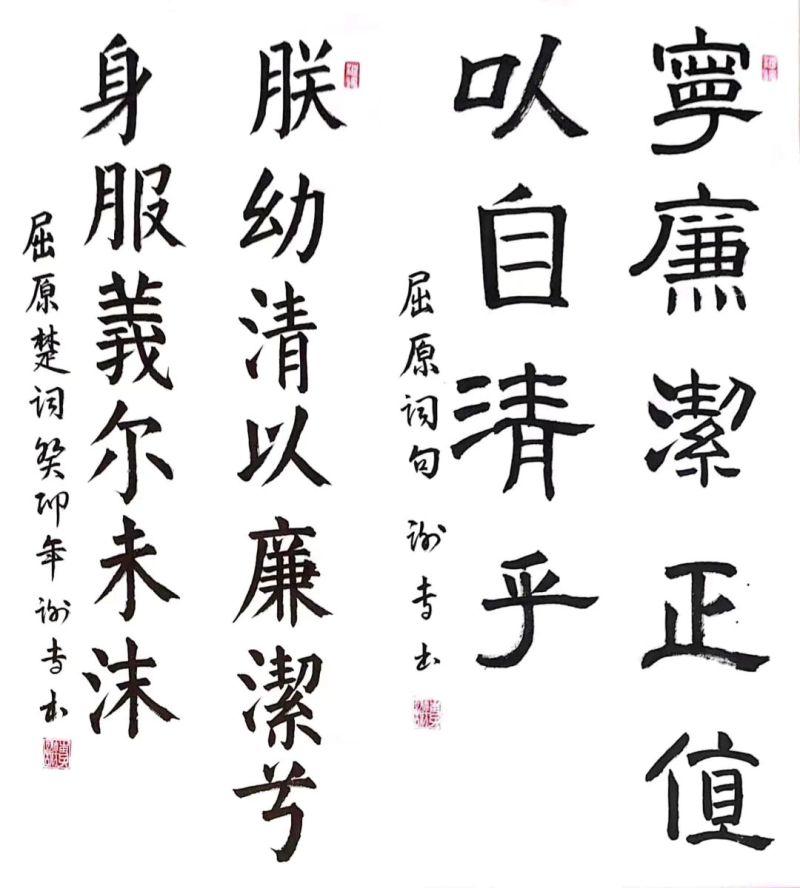 寧廉潔正值
以自清乎
屈原词句 谢 书
朕幼清以廉潔兮
身服義尔未沫
屈原楚词癸卯年谢 书